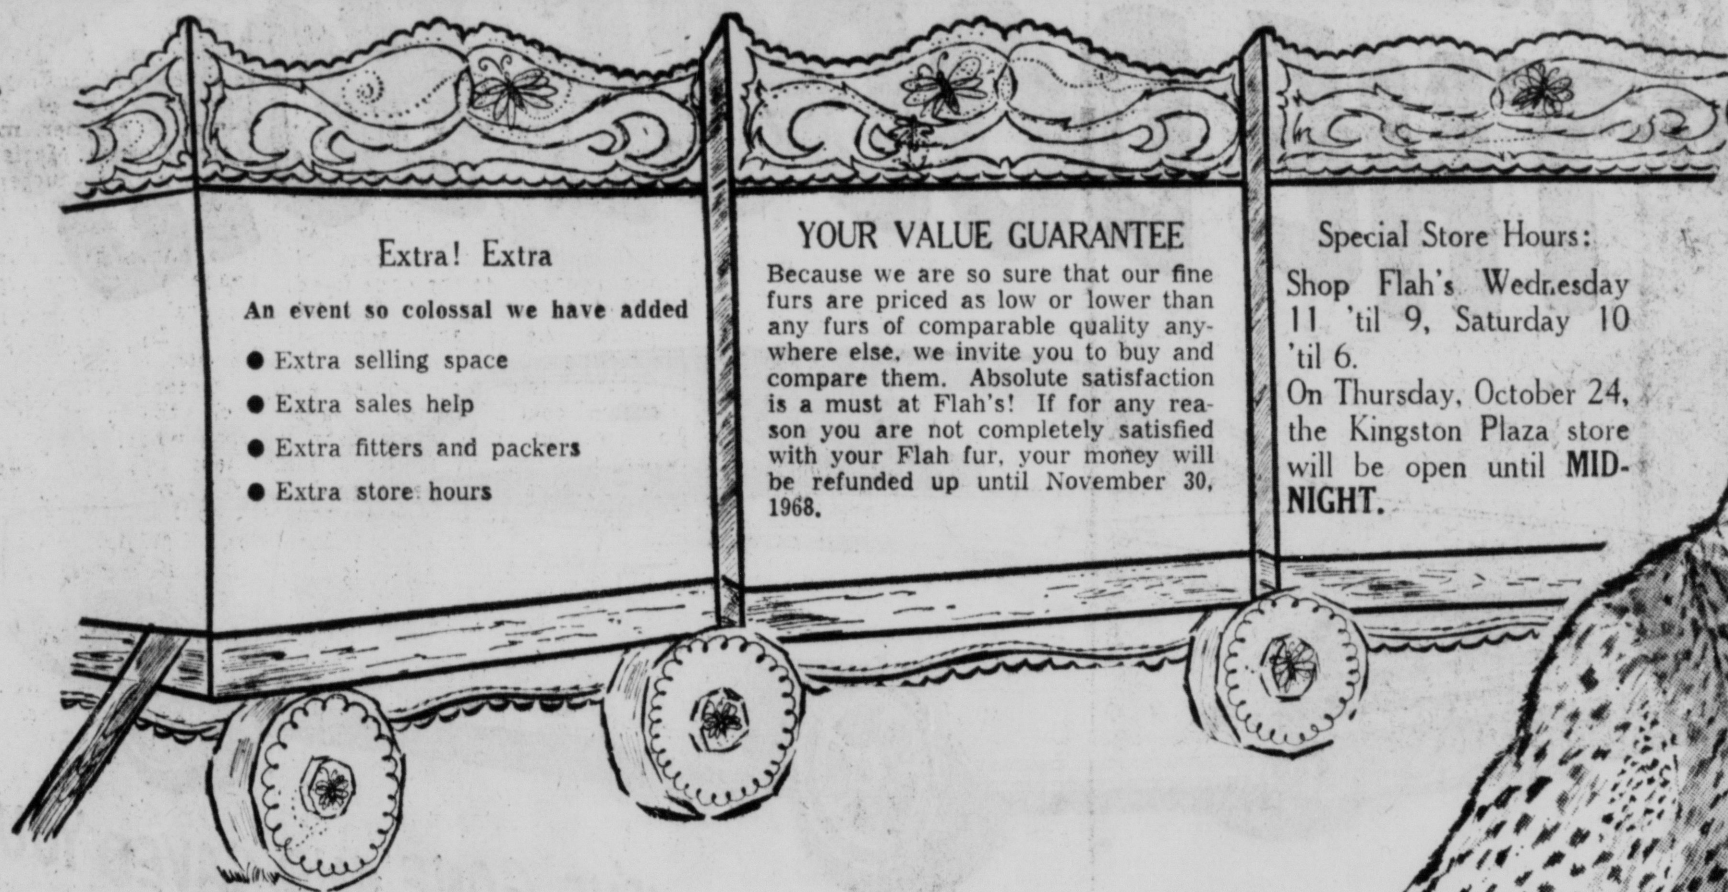 Extra! Extra
An event so colossal we have added
● Extra selling space
● Extra sales help
● Extra fitters and packers
● Extra store hours
YOUR VALUE GUARANTEE
Because we are so sure that our fine
furs are priced as low or lower than
any furs of comparable quality any-
where else, we invite you to buy and
compare them. Absolute satisfaction
is a must at Flah's! If for any rea-
son you are not completely satisfied
with your Flah fur, your money will
be refunded up until November 30,
1968.
Special Store Hours:
Shop Flah's Wednesday
11 'til 9, Saturday 10
'til 6.
On Thursday, October 24,
the Kingston Plaza store
will be open until MID-
NIGHT.